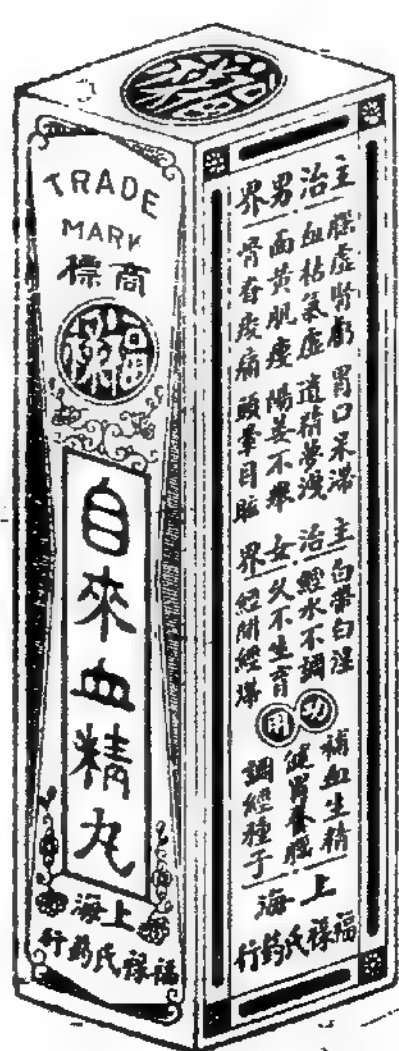 TRADE
MARK
商標
福祿
自來血精丸
上海
福祿氏药行
主治男界
腦虛腎虧 胃口呆滯
血枯氣虛 遺精夢洩
面黃肌瘦 陽萎不舉
腎脊痠痛 頭暈目眩
主治女界
白帶白淫
經水不調
久不生育
經閉經
功用
補血生精
健胃養腦
調經種子
上海
福祿氏药行